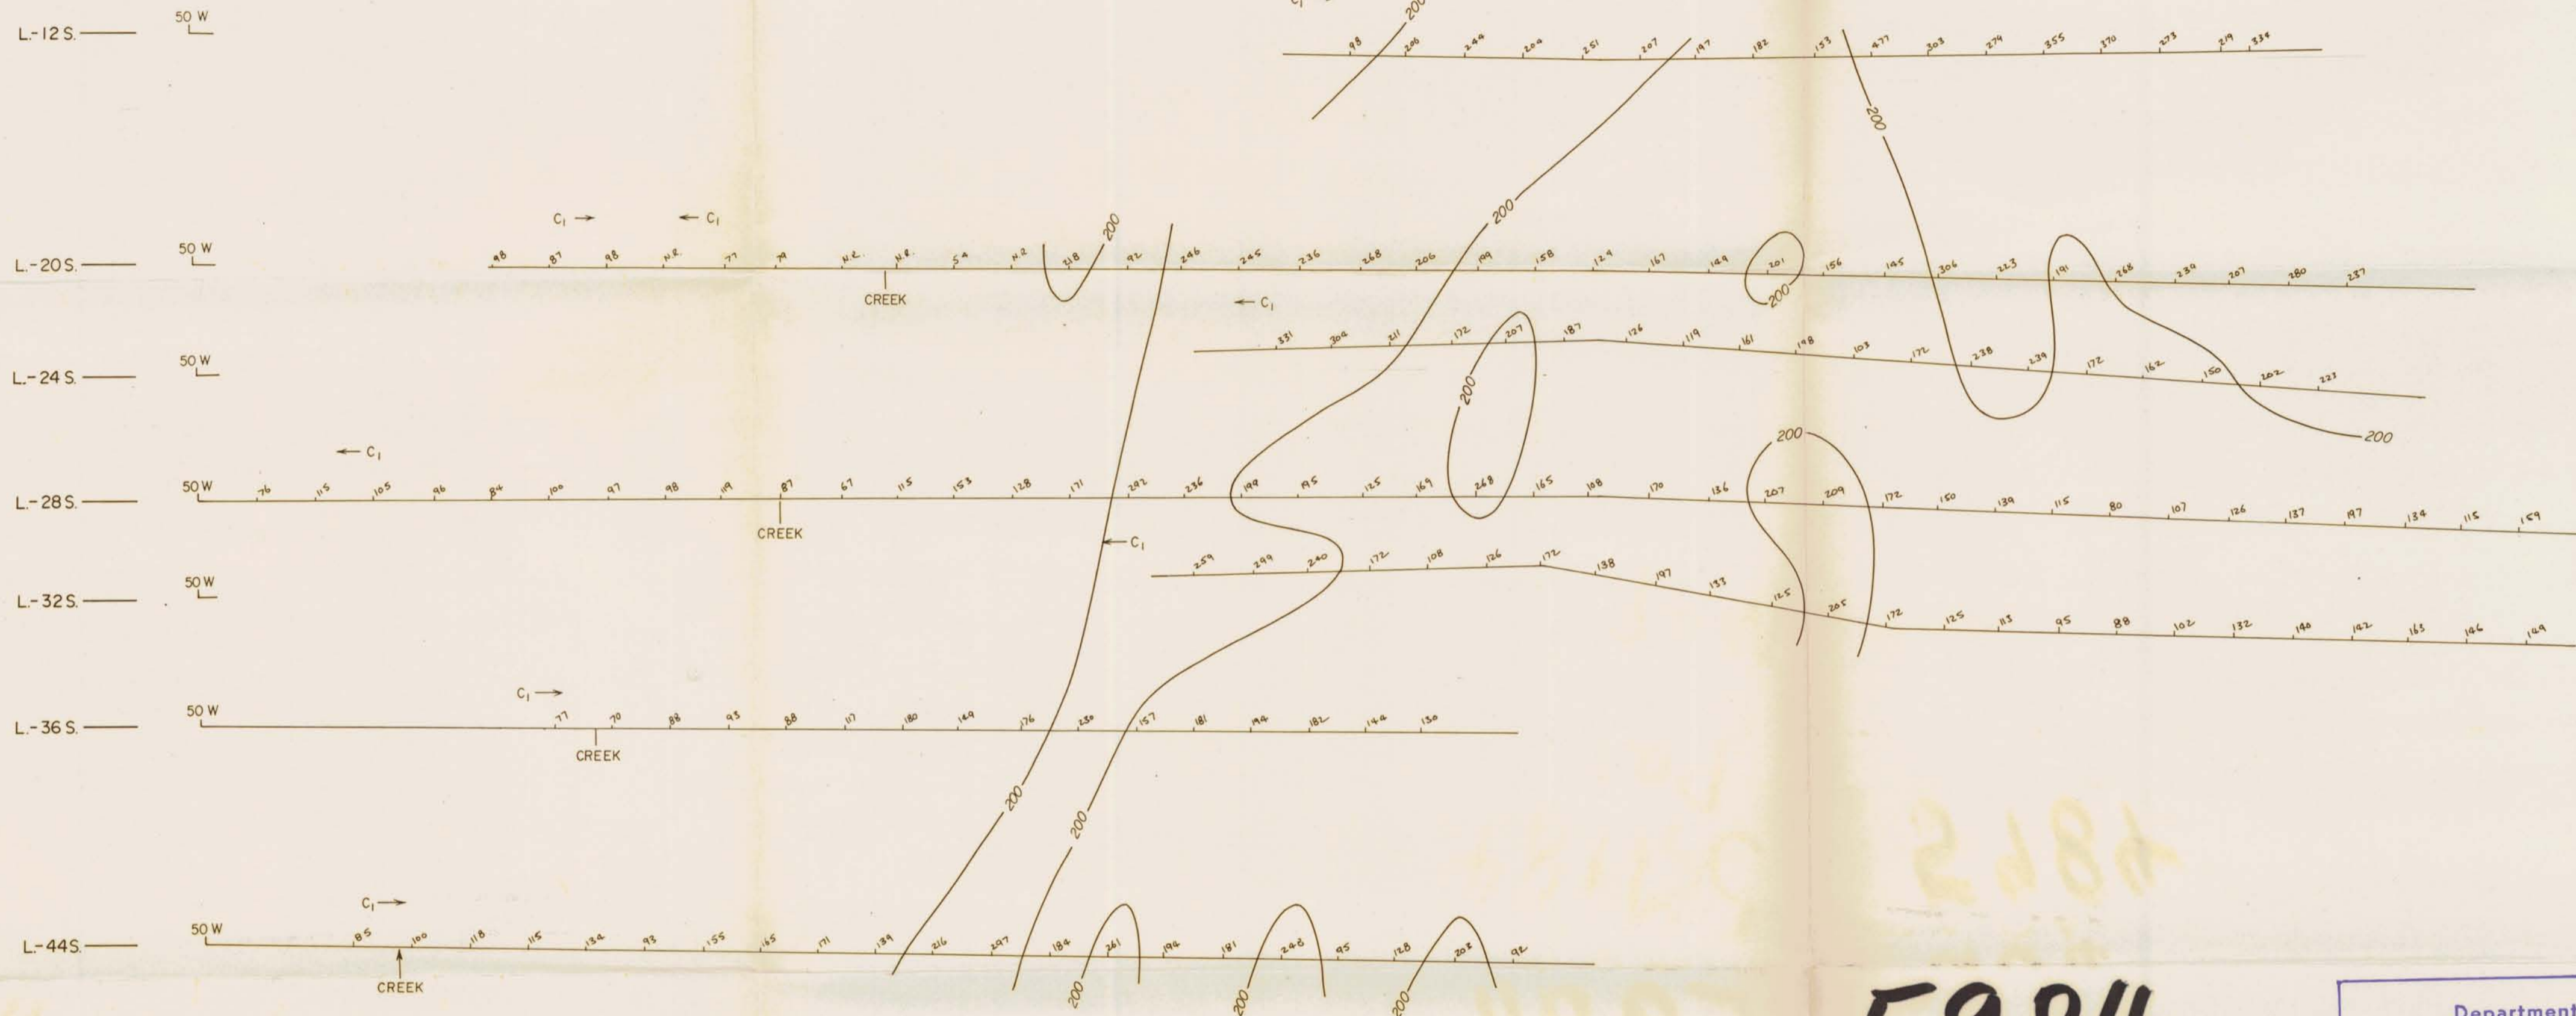 200
L.-12 S. 50 W 98 206 244 204 251 207 197 182 153 477 303 279 355 370 273 219 334
200
C₁ → ← C₁
200
200
L.-20 S. 50 W 98 87 98 N.R. 77 79 N.R. N.R. 54 N.R. 218 92 246 245 236 268 206 199 158 129 167 149 201 156 145 306 223 191 268 239 207 280 237
CREEK
← C₁
200
331 304 211 172 207 187 126 119 161 198 103 172 238 239 172 162 150 202 223
L.-24 S. 50 W
200
200
200
← C₁
L.-28 S. 50 W 76 115 105 96 84 100 97 98 119 87 67 115 153 128 171 292 236 199 195 125 169 268 165 108 170 136 207 209 172 150 139 115 80 107 126 137 197 134 115 159
CREEK
← C₁
L.-32 S. 50 W 259 299 240 172 108 126 172 138 197 133 125 205 172 125 113 95 88 102 132 140 142 163 146 149
C₁ →
L.-36 S. 50 W 77 70 88 93 88 117 180 149 176 230 157 181 194 182 144 130
CREEK
200
200
C₁ →
L.-44 S. 50 W 85 100 118 115 134 93 155 165 171 139 216 297 184 261 194 181 248 95 128 202 92
CREEK
200
200
200
Department